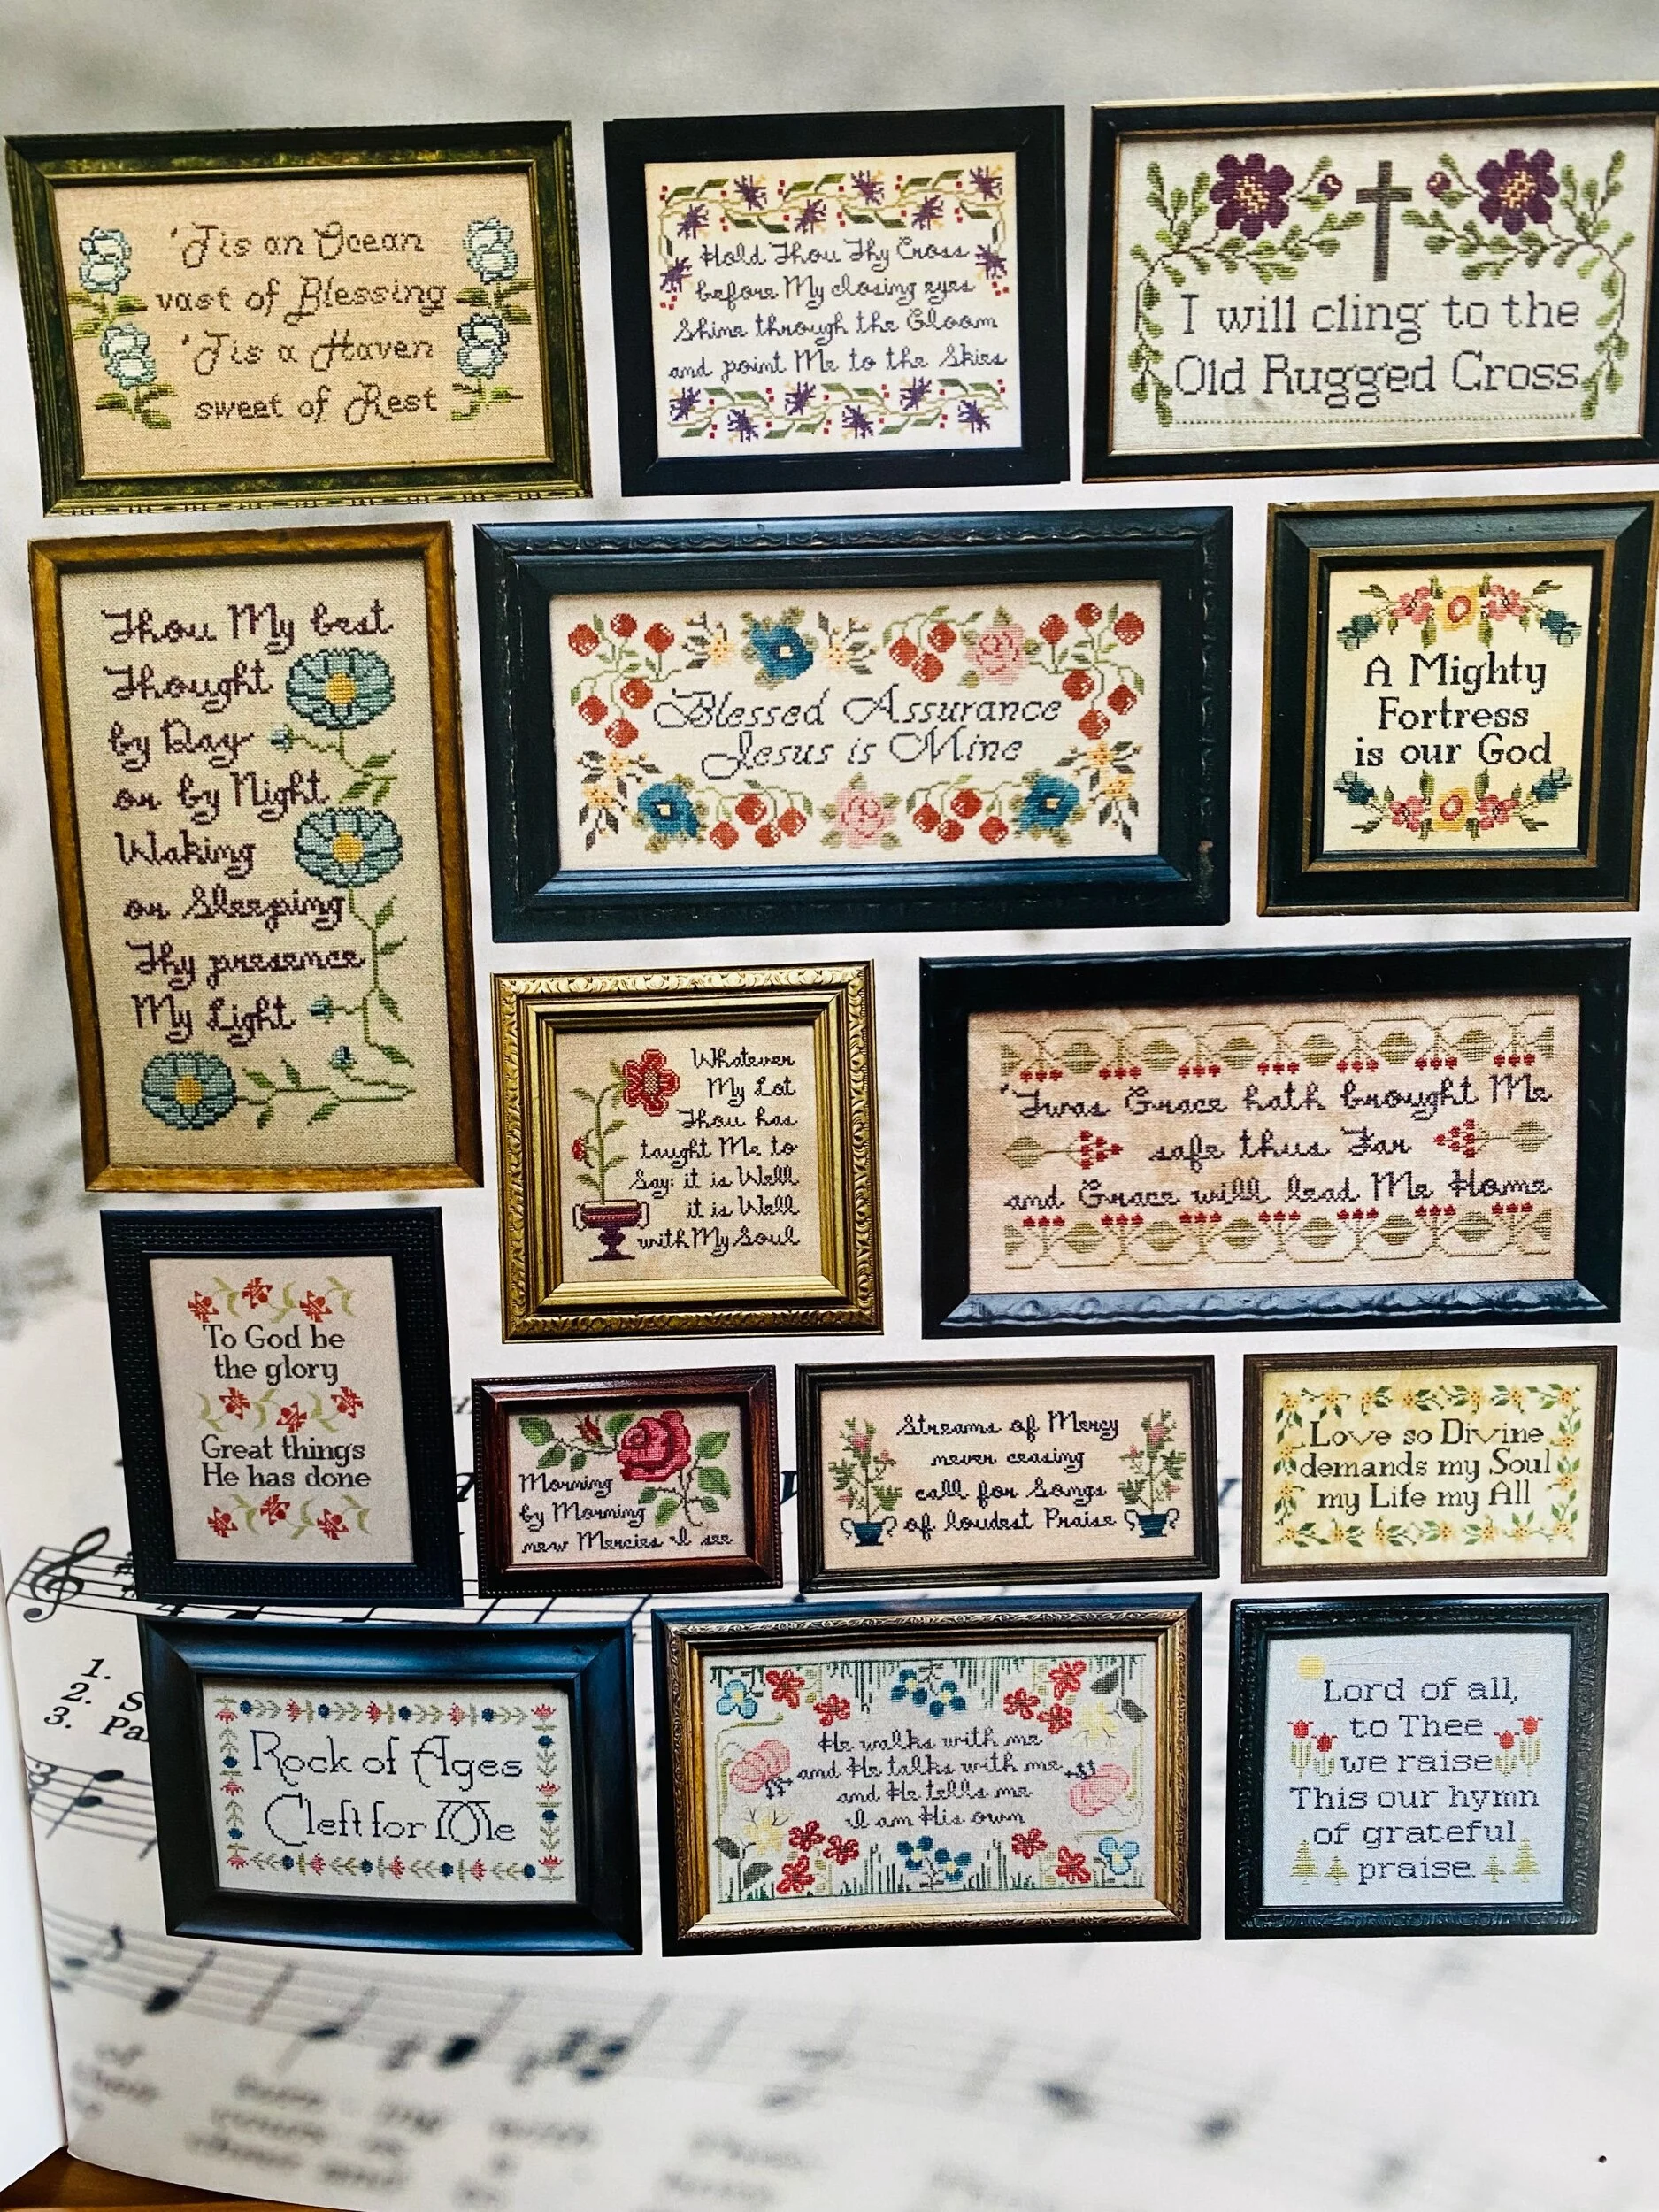 'Tis an Ocean
vast of Blessing
'Tis a Haven
sweet of Rest
Hold Thou Thy Cross
before My closing eyes
Shine through the Gloom
and point Me to the Skies
I will cling to the
Old Rugged Cross
Thou My best
Thought
by Day
or by Night
Waking
or Sleeping
Thy presence
My Light
Blessed Assurance
Jesus is Mine
A Mighty
Fortress
is our God
Whatever
My Lot
Thou has
taught Me to
Say: it is Well
it is Well
with My Soul
'Twas Grace hath brought Me
safe thus Far
and Grace will lead Me Home
To God be
the glory
Great things
He has done
Morning
by Morning
new Mercies I see
Streams of Mercy
never ceasing
call for Songs
of loudest Praise
Love so Divine
demands my Soul
my Life my All
1.
2. S
3. Pa
3
Rock of Ages
Cleft for Me
He walks with me
and He talks with me
and He tells me
I am His own
Lord of all,
to Thee
we raise
This our hymn
of grateful
praise.
of